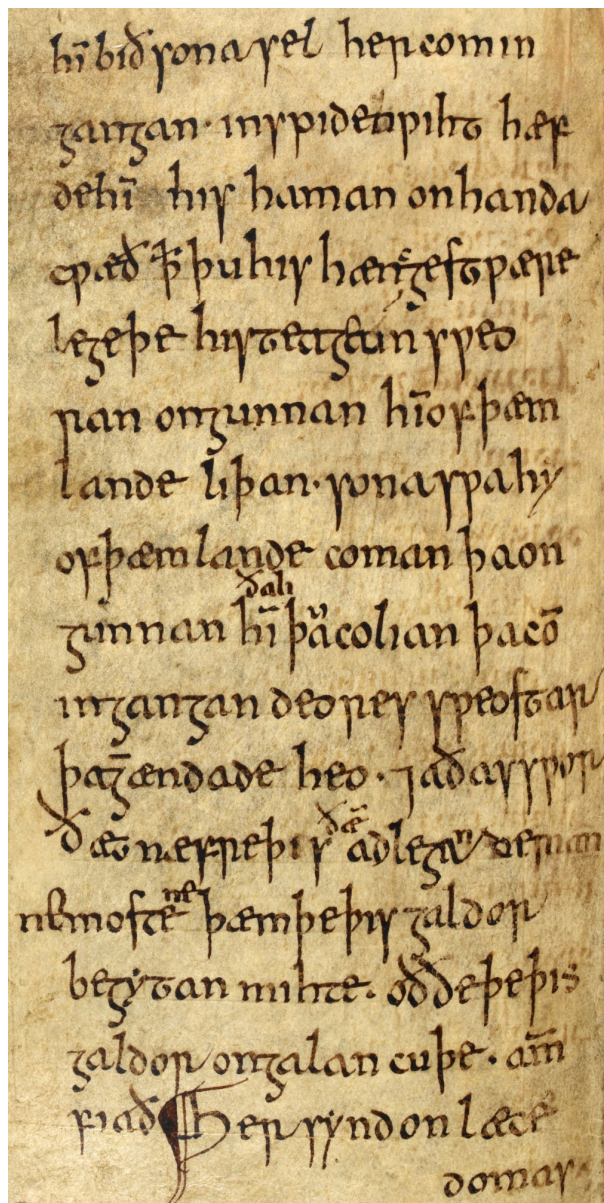 hī bið sona sel her com in
gangan · in spiden ƿiht hæf
de hī his haman on handa
cƿæð ꝥ þu his hæncgest ƿære
lege þe his teage an sƿeo
ran ongunnan hī of þæm
lande liþan · sona sƿa hy
of þæm lande coman þa on
gunnan hī ða liþa colian þa cō
in gangan deores sƿeostar
þa gændade heo · ⁊ aðas sƿor
ðæt næfre þis ðæ adlegan derian
ne moste ne þæm þe þis galdor
begytan mihte · oððe þe þis
galdor ongalan cuþe · am̄
fiað Her syndon læce
domas